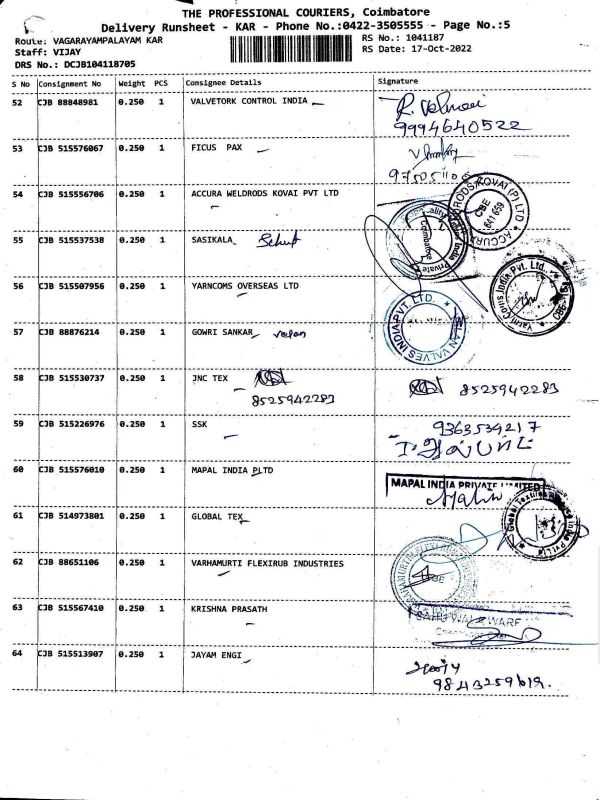 THE PROFESSIONAL COURIERS, Coimbatore
Delivery Runsheet - KAR - Phone No.:0422-3505555 - Page No.:5
Route: VAGARAYAMPALAYAM KAR
RS No.: 1041187
Staff: VIJAY
RS Date: 17-Oct-2022
DRS No.: DCJB104118705
S No Consignment No Weight PCS Consignee Details Signature
52 CJB 88848981 0.250 1 VALVETORK CONTROL INDIA
9994640522
53 CJB 515576067 0.250 1 FICUS PAX
54 CJB 515556706 0.250 1 ACCURA WELDRODS KOVAI PVT LTD
ACCURA WELDRODS KOVAI (P) LTD
CBE
641 659
55 CJB 515537538 0.250 1 SASIKALA
Coimbatore
56 CJB 515507956 0.250 1 YARNCOMS OVERSEAS LTD
Yarn Coms India Pvt. Ltd.
57 CJB 88876214 0.250 1 GOWRI SANKAR
VALVES INDIA PVT. LTD.
58 CJB 515530737 0.250 1 JNC TEX
8525942283
8525942283
59 CJB 515226976 0.250 1 SSK
9363539217
60 CJB 515576010 0.250 1 MAPAL INDIA PLTD
MAPAL INDIA PRIVATE LIMITED
61 CJB 514973801 0.250 1 GLOBAL TEX
62 CJB 88651106 0.250 1 VARHAMURTI FLEXIRUB INDUSTRIES
63 CJB 515567410 0.250 1 KRISHNA PRASATH
64 CJB 515513907 0.250 1 JAYAM ENGI